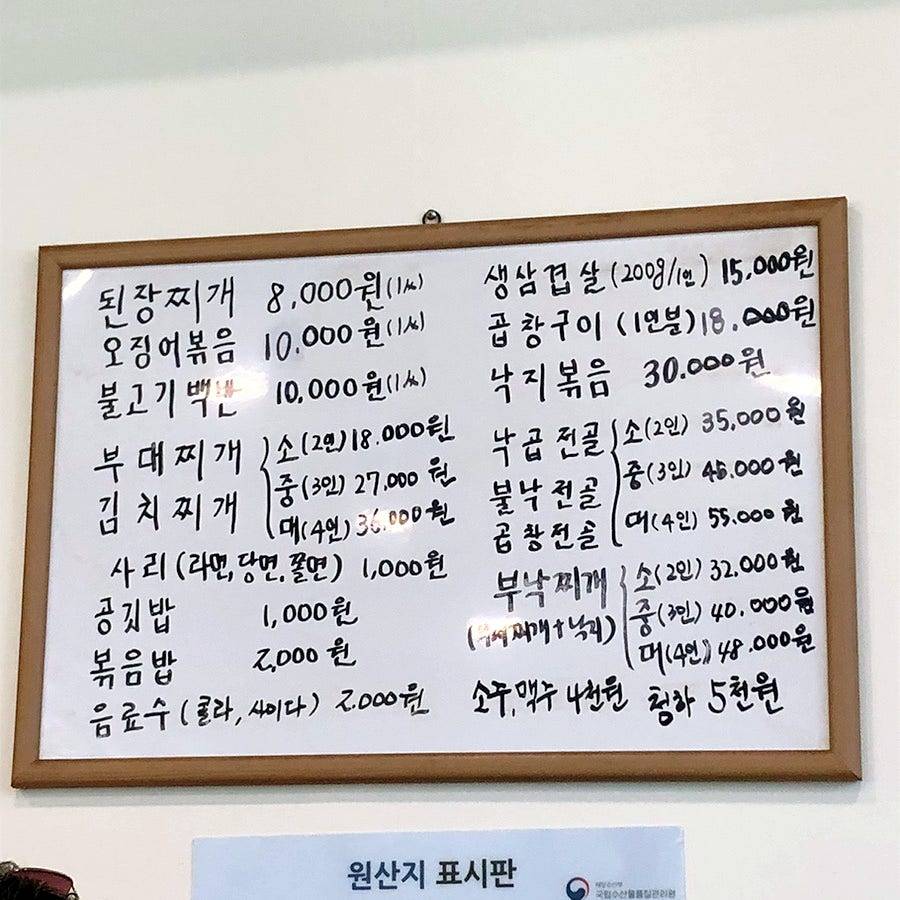 된장찌개 8,000원(1人)
오징어볶음 10.000원(1人)
불고기백반 10,000원(1人)
부대찌개
김치찌개
소(2인) 18.000원
중(3인) 27,000원
대(4인) 36,000원
사리(라면,당면,쫄면) 1,000원
공깃밥 1,000원
볶음밥 2,000원
음료수(콜라,사이다) 2.000원
생삼겹살(200g/1인) 15,000원
곱창구이(1인분) 18.000원
낙지볶음 30.000원
낙곱전골
불낙전골
곱창전골
소(2인) 35,000원
중(3인) 45.000원
대(4인) 55.000원
부낙찌개
(부대찌개+낙지)
소(2인) 32.000원
중(3인) 40.000원
대(4인) 48.000원
소주,맥주 4천원 청하 5천원
원산지 표시판
해양수산부
국립수산물품질관리원